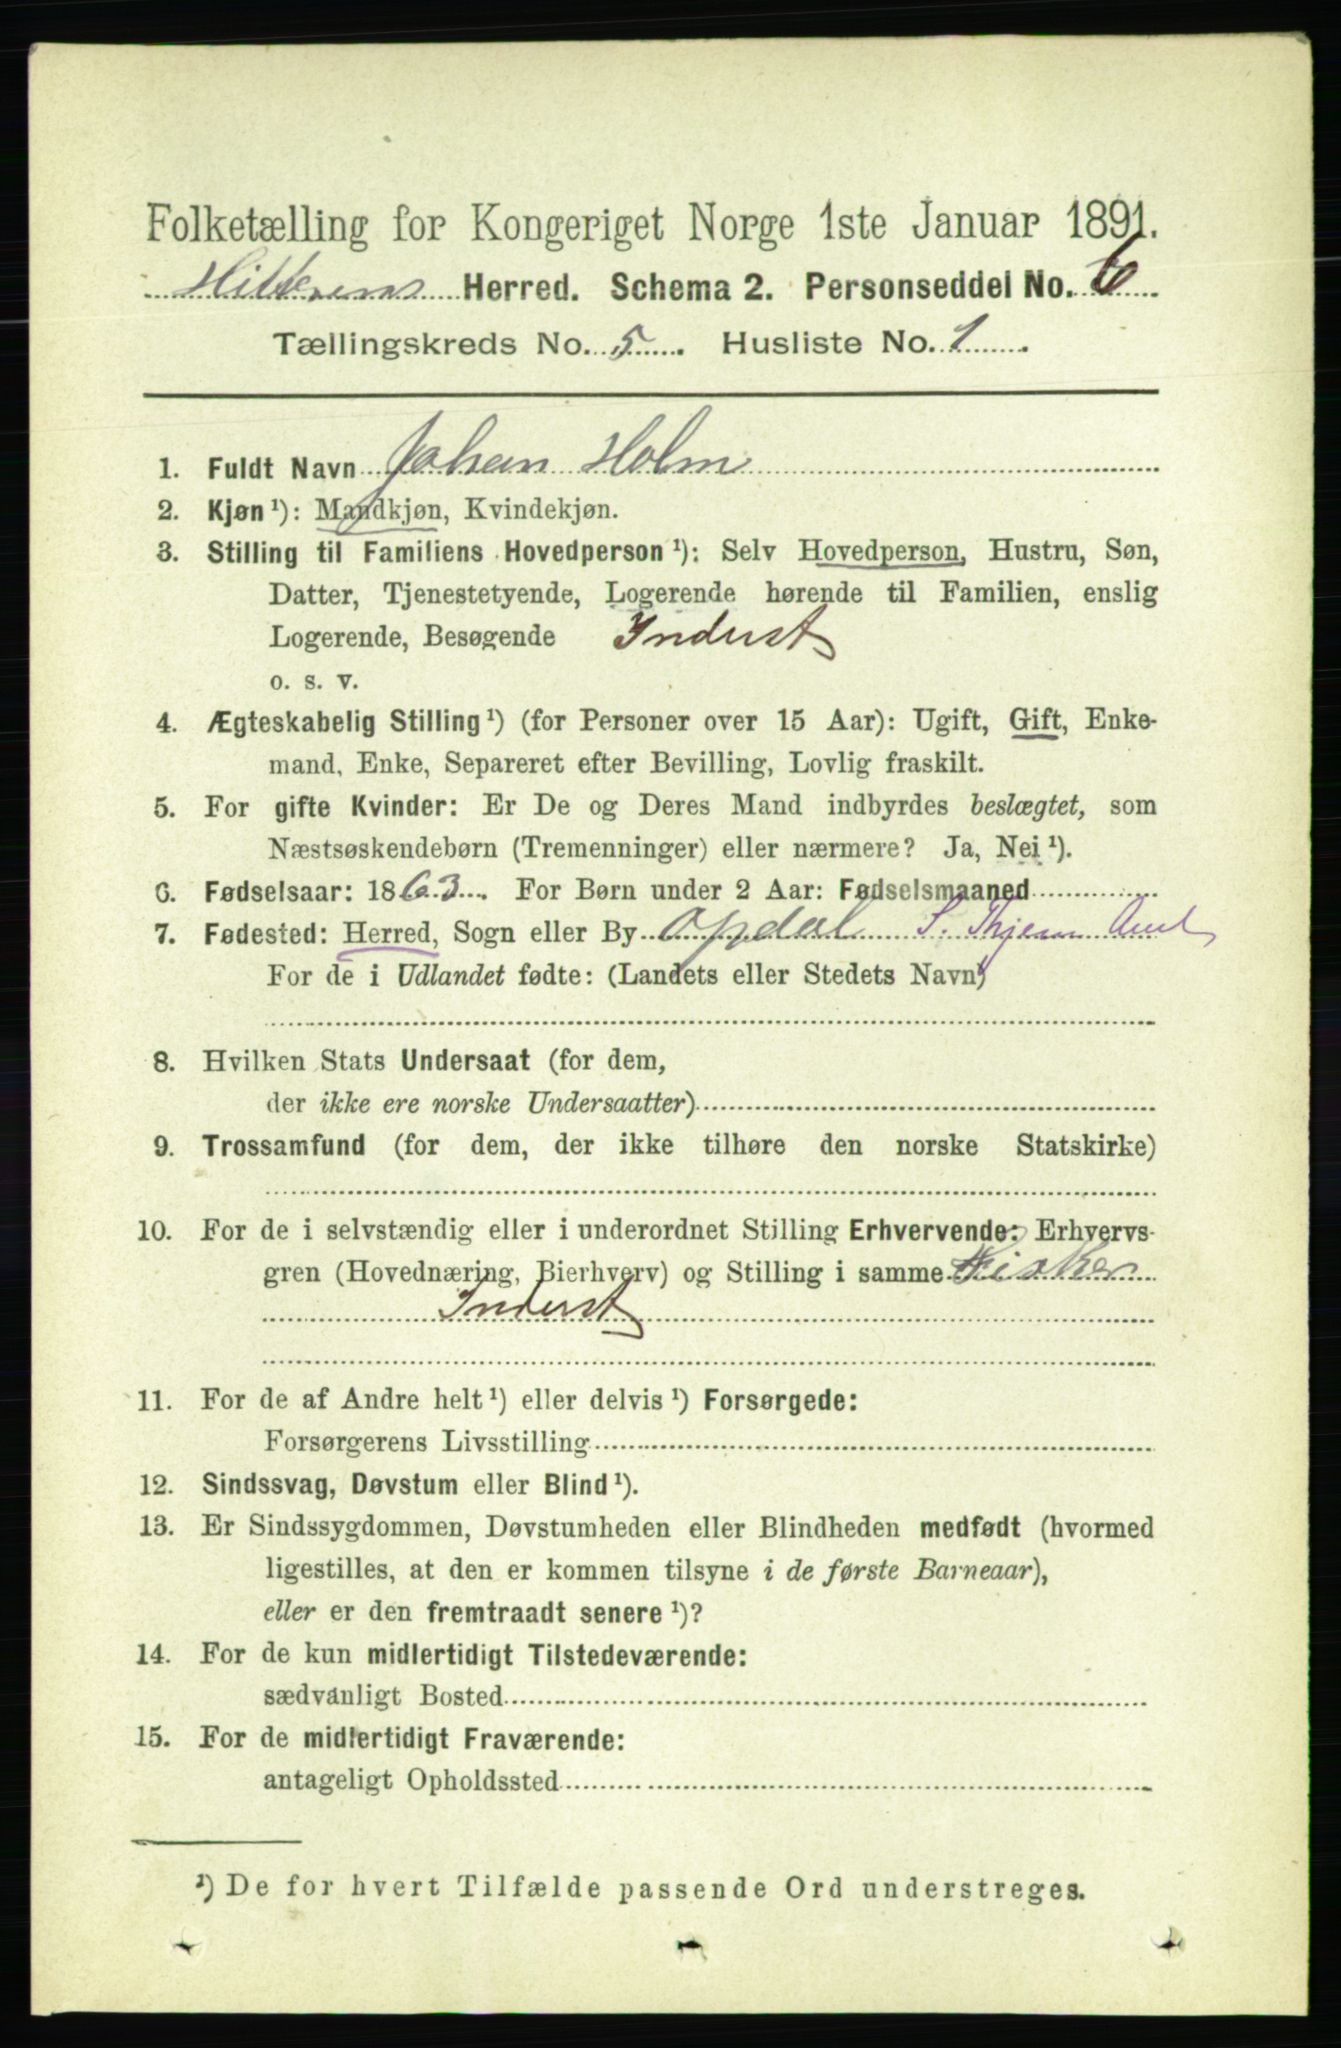 Folketælling for Kongeriget Norge 1ste Januar 1891.
Hitterens Herred. Schema 2. Personseddel No. 6
Tællingskreds No. 5. Husliste No. 1.
1. Fuldt Navn Johan Holm
2. Kjøn ¹): Mandkjøn, Kvindekjøn.
3. Stilling til Familiens Hovedperson ¹): Selv Hovedperson, Hustru, Søn,
Datter, Tjenestetyende, Logerende hørende til Familien, enslig
Logerende, Besøgende Inderst
o. s. v.
4. Ægteskabelig Stilling ¹) (for Personer over 15 Aar): Ugift, Gift, Enke-
mand, Enke, Separeret efter Bevilling, Lovlig fraskilt.
5. For gifte Kvinder: Er De og Deres Mand indbyrdes beslægtet, som
Næstsøskendebørn (Tremenninger) eller nærmere? Ja, Nei ¹).
6. Fødselsaar: 1863. For Børn under 2 Aar: Fødselsmaaned
7. Fødested: Herred, Sogn eller By Opdal S. Thjem Amt
For de i Udlandet fødte: (Landets eller Stedets Navn)
8. Hvilken Stats Undersaat (for dem,
der ikke ere norske Undersaatter)
9. Trossamfund (for dem, der ikke tilhøre den norske Statskirke)
10. For de i selvstændig eller i underordnet Stilling Erhvervende: Erhvervs-
gren (Hovednæring, Bierhverv) og Stilling i samme Fisker
Inderst
11. For de af Andre helt ¹) eller delvis ¹) Forsørgede:
Forsørgerens Livsstilling
12. Sindssvag, Døvstum eller Blind ¹).
13. Er Sindssygdommen, Døvstumheden eller Blindheden medfødt (hvormed
ligestilles, at den er kommen tilsyne i de første Barneaar),
eller er den fremtraadt senere ¹)?
14. For de kun midlertidigt Tilstedeværende:
sædvanligt Bosted
15. For de midlertidigt Fraværende:
antageligt Opholdssted
¹) De for hvert Tilfælde passende Ord understreges.